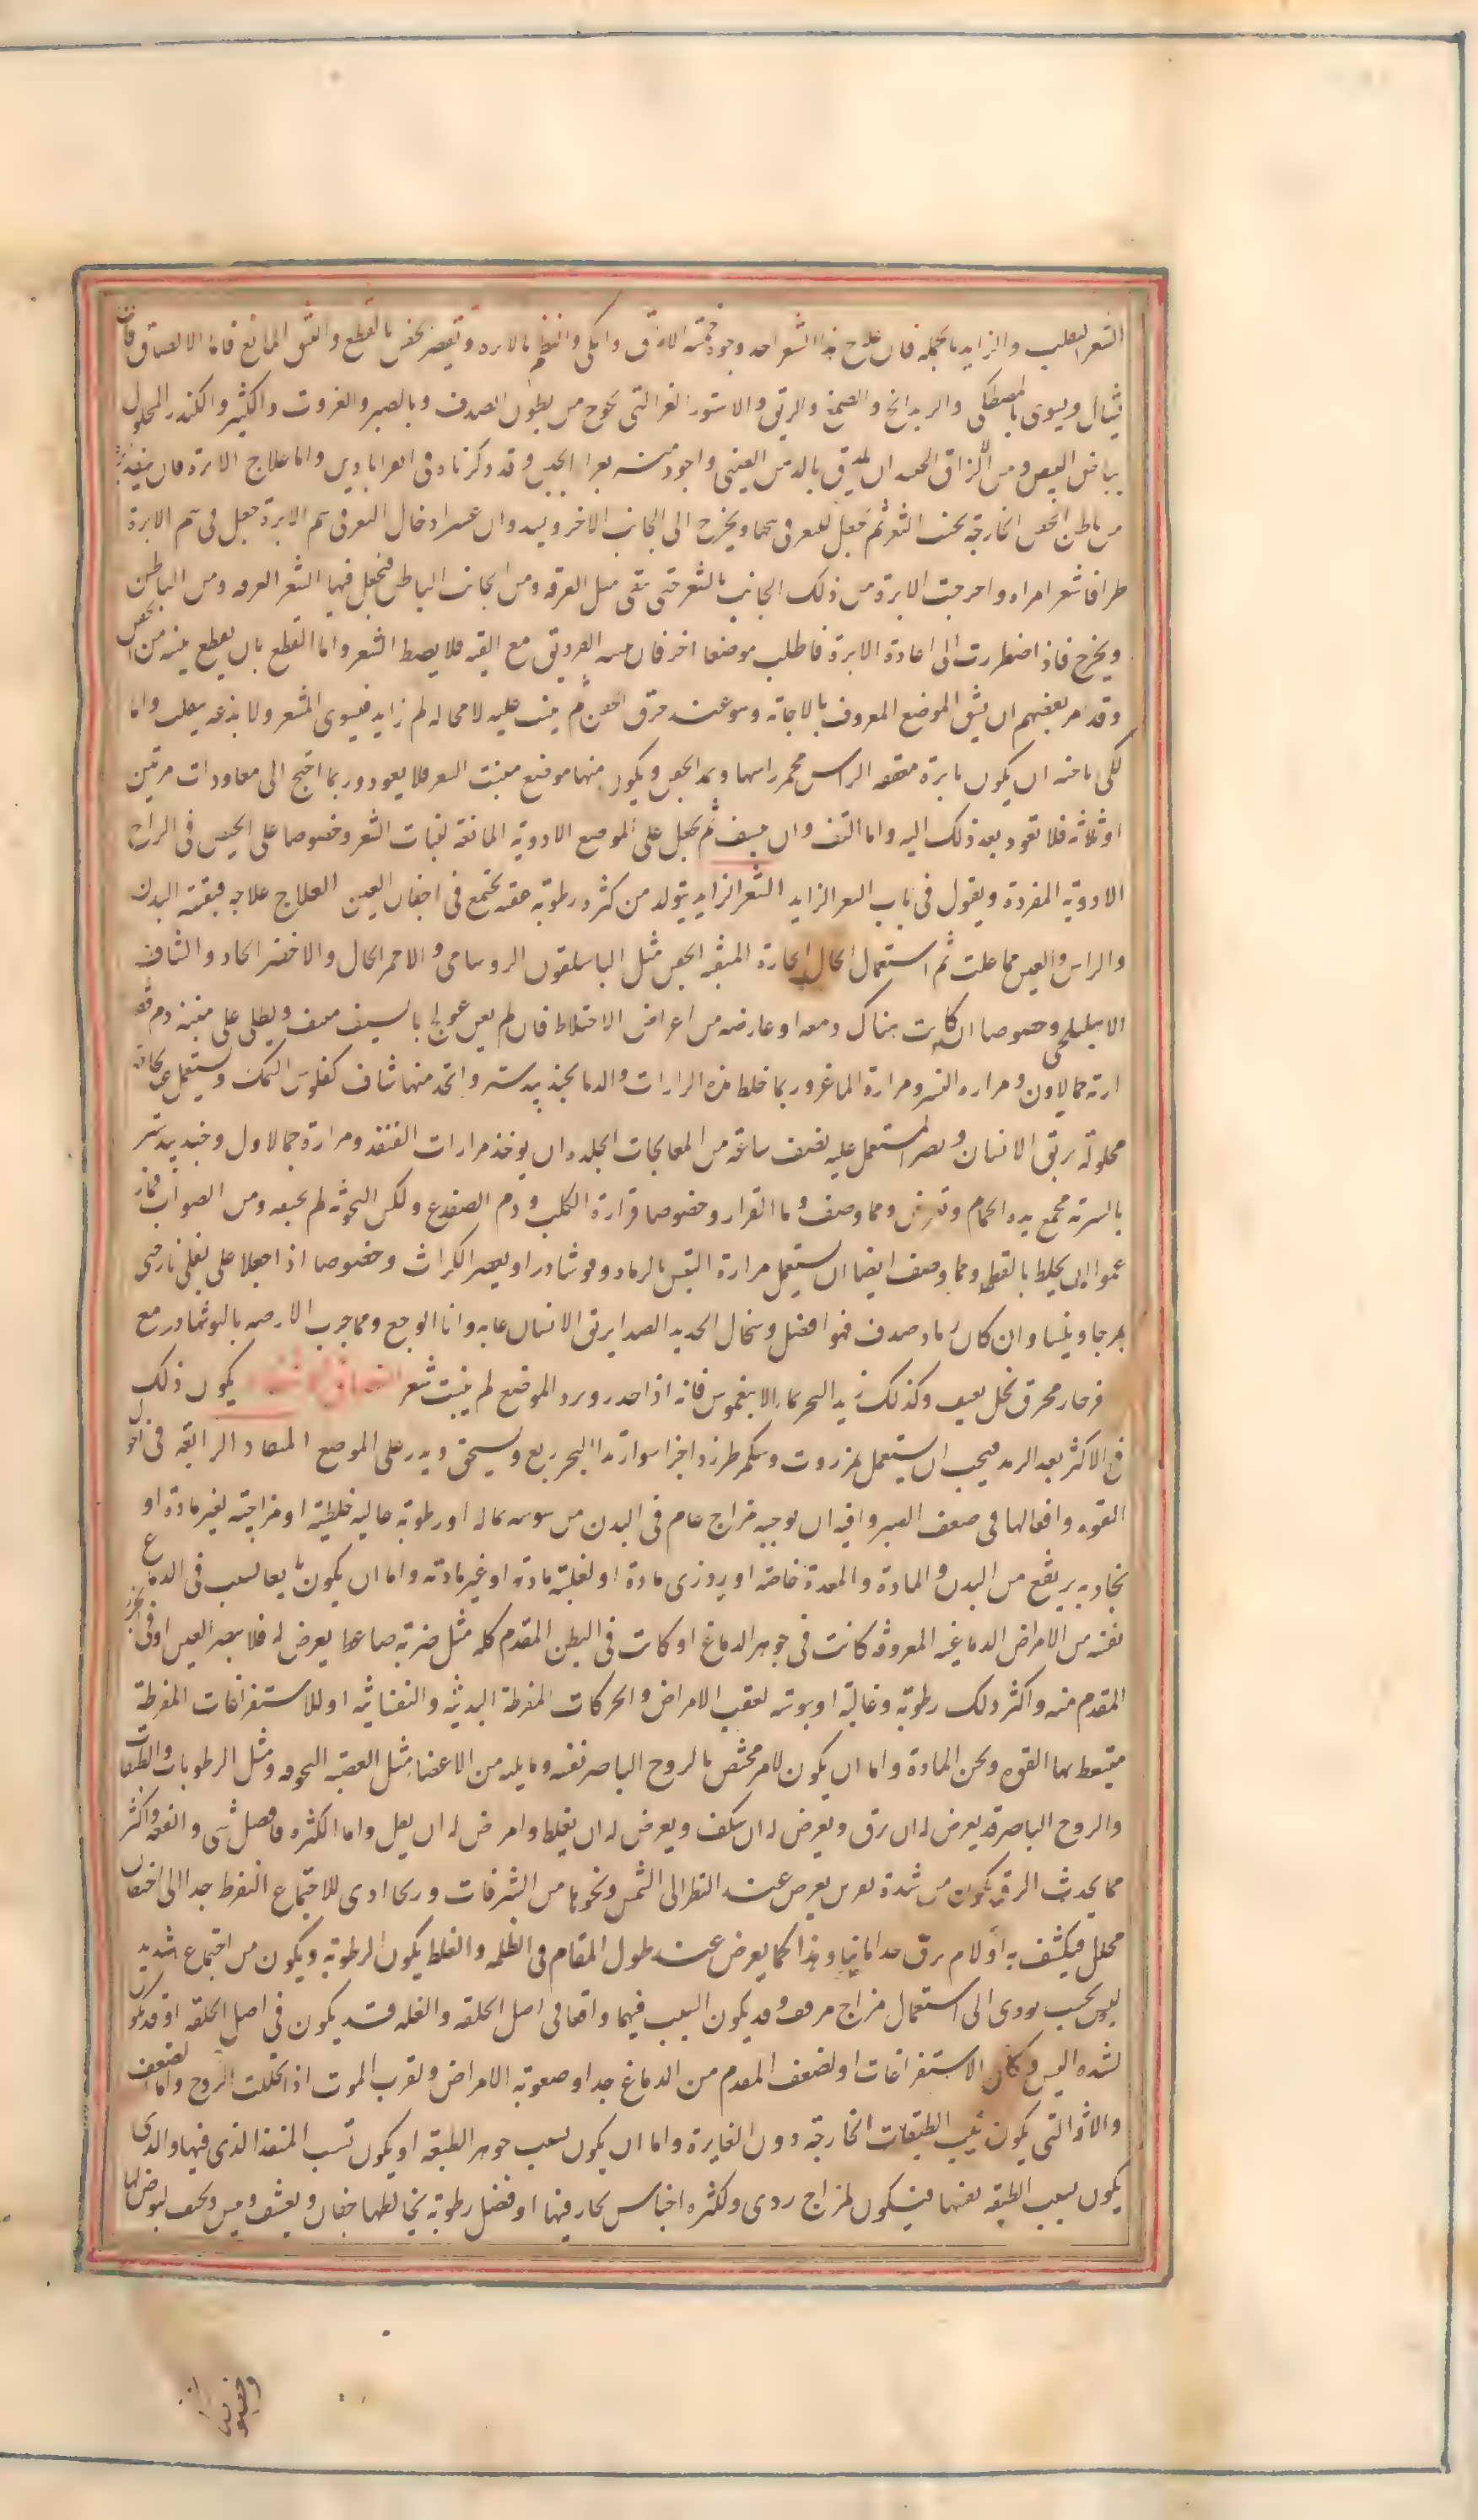 الشعر المنقلب والزايد بالجملة فان علاج هذا الشعر احد وجوه خمسة الالزاق والكى والنظم بالابرة وتقصير الجفن بالقطع والنتف المانع فاما الالصاق فان
يشال ويسوى بالمصطكى والريدانج والصمغ والريق والاستور الغرا التى يخرج من بطون الصدف وبالصبر والغروت والكثيرا والكندر المحلول
ببياض البيض ومن الالزاق الجيد ان يلزق بالدهن الصينى واجود منه بغرا الجبن وقد ذكرناه فى القراباذين واما علاج الابرة فان ينفذ
من باطن الجفن الى خارجه بجنب الشعر ثم يجعل الشعر فى سمها ويخرج الى الجانب الاخر ويشد وان عسر ادخال الشعر فى سم الابرة جعل فى سم الابرة
طرفا شعر امراة واخرجت الابرة من ذلك الجانب بالشعر حتى يبقى مثل العروة ومن الجانب الباطن فيجعل فيها الشعر
ويخرج فاذا اضطررت الى اعادة الابرة فاطلب موضعا اخر فان يوسع الثقبة فلا يضبط الشعر واما القطع بان يقطع منبته من الجفن
وقد امر بعضهم ان يشق الموضع المعروف بالاجانة وهو عند حرق الجفن ثم ينبت عليه لا محالة لحم زايد فيسوى الشعر ولا يدعه ينقلب واما
الكى فاحسنه ان يكون بابرة معقفة الراس يحمى راسها ويمد الجفن ويكوى بها موضع منبت الشعر فلا يعود وربما احتيج الى معاودات مرتين
او ثلاثة فلا تعود بعد ذلك اليه واما النتف وان ينتف ثم يجعل على الموضع الادوية المانعة لنبات الشعر وخصوصا على الجفن فى الواح
الادوية المفردة ويقول فى باب الشعر الزايد الشعر الزايد يتولد من كثرة رطوبة عفنة تجتمع فى اجفان العين العلاج علاجه تنقية البدن
والراس والعين مما علمت ثم استعمال الكحال الحارة المنقية الجفن مثل الباسليقون الروشناى والاحمر الحاد والاخضر الحاد والشياف
الاهليلجى وخصوصا ان كانت هناك دمعة او عارضة من اعراض الاختلاط فان لم يغن عولج بالنتف ينتف ويطلى على منبته دم
ومرارة النسر ومرارة الماعز وربما خلط هذه المرارات والدما بجندبيدستر واتخذ منها شياف كفلوس السمك ويستعمل عند الحاجة
محلولة بريق الانسان ويصبر المستعمل عليه نصف ساعة من المعالجات الجيدة ان يوخذ مرارات القنفذ ومرارة وجندبيدستر
بالسوية يجمع بدم الحمام وتقرص ومما وصف دما القراد وخصوصا قراد الكلب ودم الضفدع ولكن التجربة لم تحققه ومن الصواب فيما
زعموا ان يخلط بالقطران ومما وصف ايضا ان يستعمل مرارة النيس بالرماد ونوشادر او بعصير الكراث وخصوصا اذا جعلا على مقلى نار حتى
يمتزجا وينشا وان كان رماد صدف فهو افضل وسحال الحديد الصدا بريق الانسان غاية وانا اوجع ومما جرب الارضة بالنوشادر مع
حافر حمار محرق بخل ثقيف وكذلك زبد البحر بماء الاسفيوس فانه اذا خدر وبرد الموضع لم ينبت شعر يكون ذلك
فى الاكثر بعد الرمد فيجب ان يستعمل انزروت وسكر طبرزد اجزا سوا زبد البحر ربع ويسحق ويذر على الموضع المقالة الرابعة فى احوال
القوة وافعالها فى ضعف البصر وافته ان يوجبه مزاج عام فى البدن من يبوسة غالبة او رطوبة غالبة خلطية او مزاجية بغير مادة او
بخارية يرتفع من البدن والمادة والمعدة خاصة او برد ذى مادة او لغلبة مادة او غير مادة واما ان يكون تابعا لسبب فى الدماغ
نفسه من الامراض الدماغية المعروفة كانت فى جوهر الدماغ او كانت فى البطن المقدم كله مثل ضربة ضاغطة يعرض له فلا يبصر العين او فى الجزء
المقدم منه واكثر ذلك رطوبة وغالبة او يبوسة لعقب الامراض والحركات المفرطة البدنية والنفسانية او للاستفراغات المفرطة
يسقط لها القوة ويحن المادة واما ان يكون لامر مختص بالروح الباصر نفسه وما يليه من الاعضا مثل العصبة المجوفة ومثل الرطوبات والطبقات
والروح الباصر قد يعرض له ان يرق ويعرض له ان يكثف ويعرض له ان يغلظ وامرض له ان يقل واما الكثرة فافضل شى وانفعه واكثر
مما يحدث الرقة يكون من شدة يعرض عند النظر الى الشمس ونحوها من المشرقات وربما ادى للاجتماع المفرط جدا الى احتقان
محلل فيكثف به اولا ثم يرق جدا ثانيا وهذا كما يعرض عند طول المقام فى الظلمة والغلظ يكون لرطوبة ويكون من اجتماع شديد
ليس بحيث يودى الى استعمال مزاج مرقق وقد يكون السبب فيهما واقعا فى اصل الخلقة والقلة قد يكون فى اصل الخلقة او قد يكون
لشدة اليبس وكثرة الاستفراغات او لضعف المقدم من الدماغ جدا وصعوبة الامراض ولقرب الموت اذا تحللت الروح واما الضعف
والافة التى يكون بسبب الطبقات الخارجة دون الغايرة واما ان يكون بسبب جوهر الطبقة او يكون بسبب المنفذ الذى فيها والذى
يكون بسبب الطبقة نفسها فيكون لمزاج ردى ولكثرة احتباس بخار فيها او فضل رطوبة يخالطها جفاف ويقشف ويبس